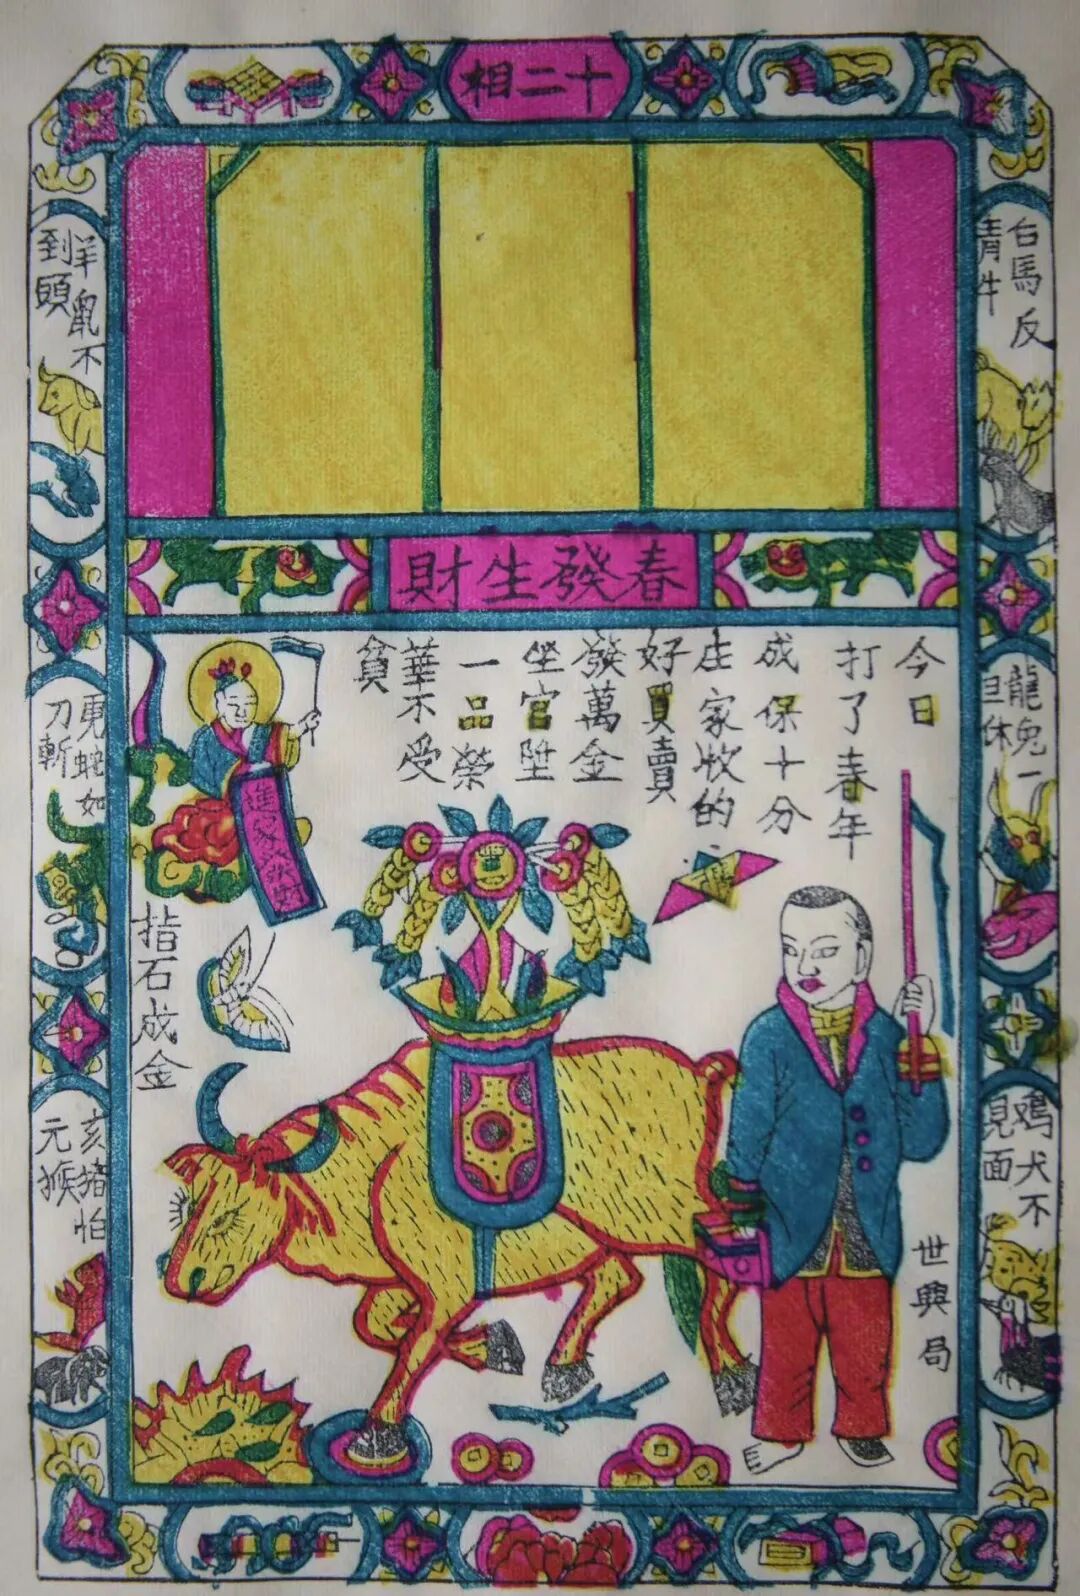 十二相
白馬反
青牛
羊鼠不
到頭
春發生財
今日
打了春年
成保十分
庄家收的
好買賣
發萬金
坐官陞
一品榮
華不受
貧
龍兔一
旦休
蛇如
刀斬
指石成金
鸡犬不
見面
亥猪怕
元猴
世興局